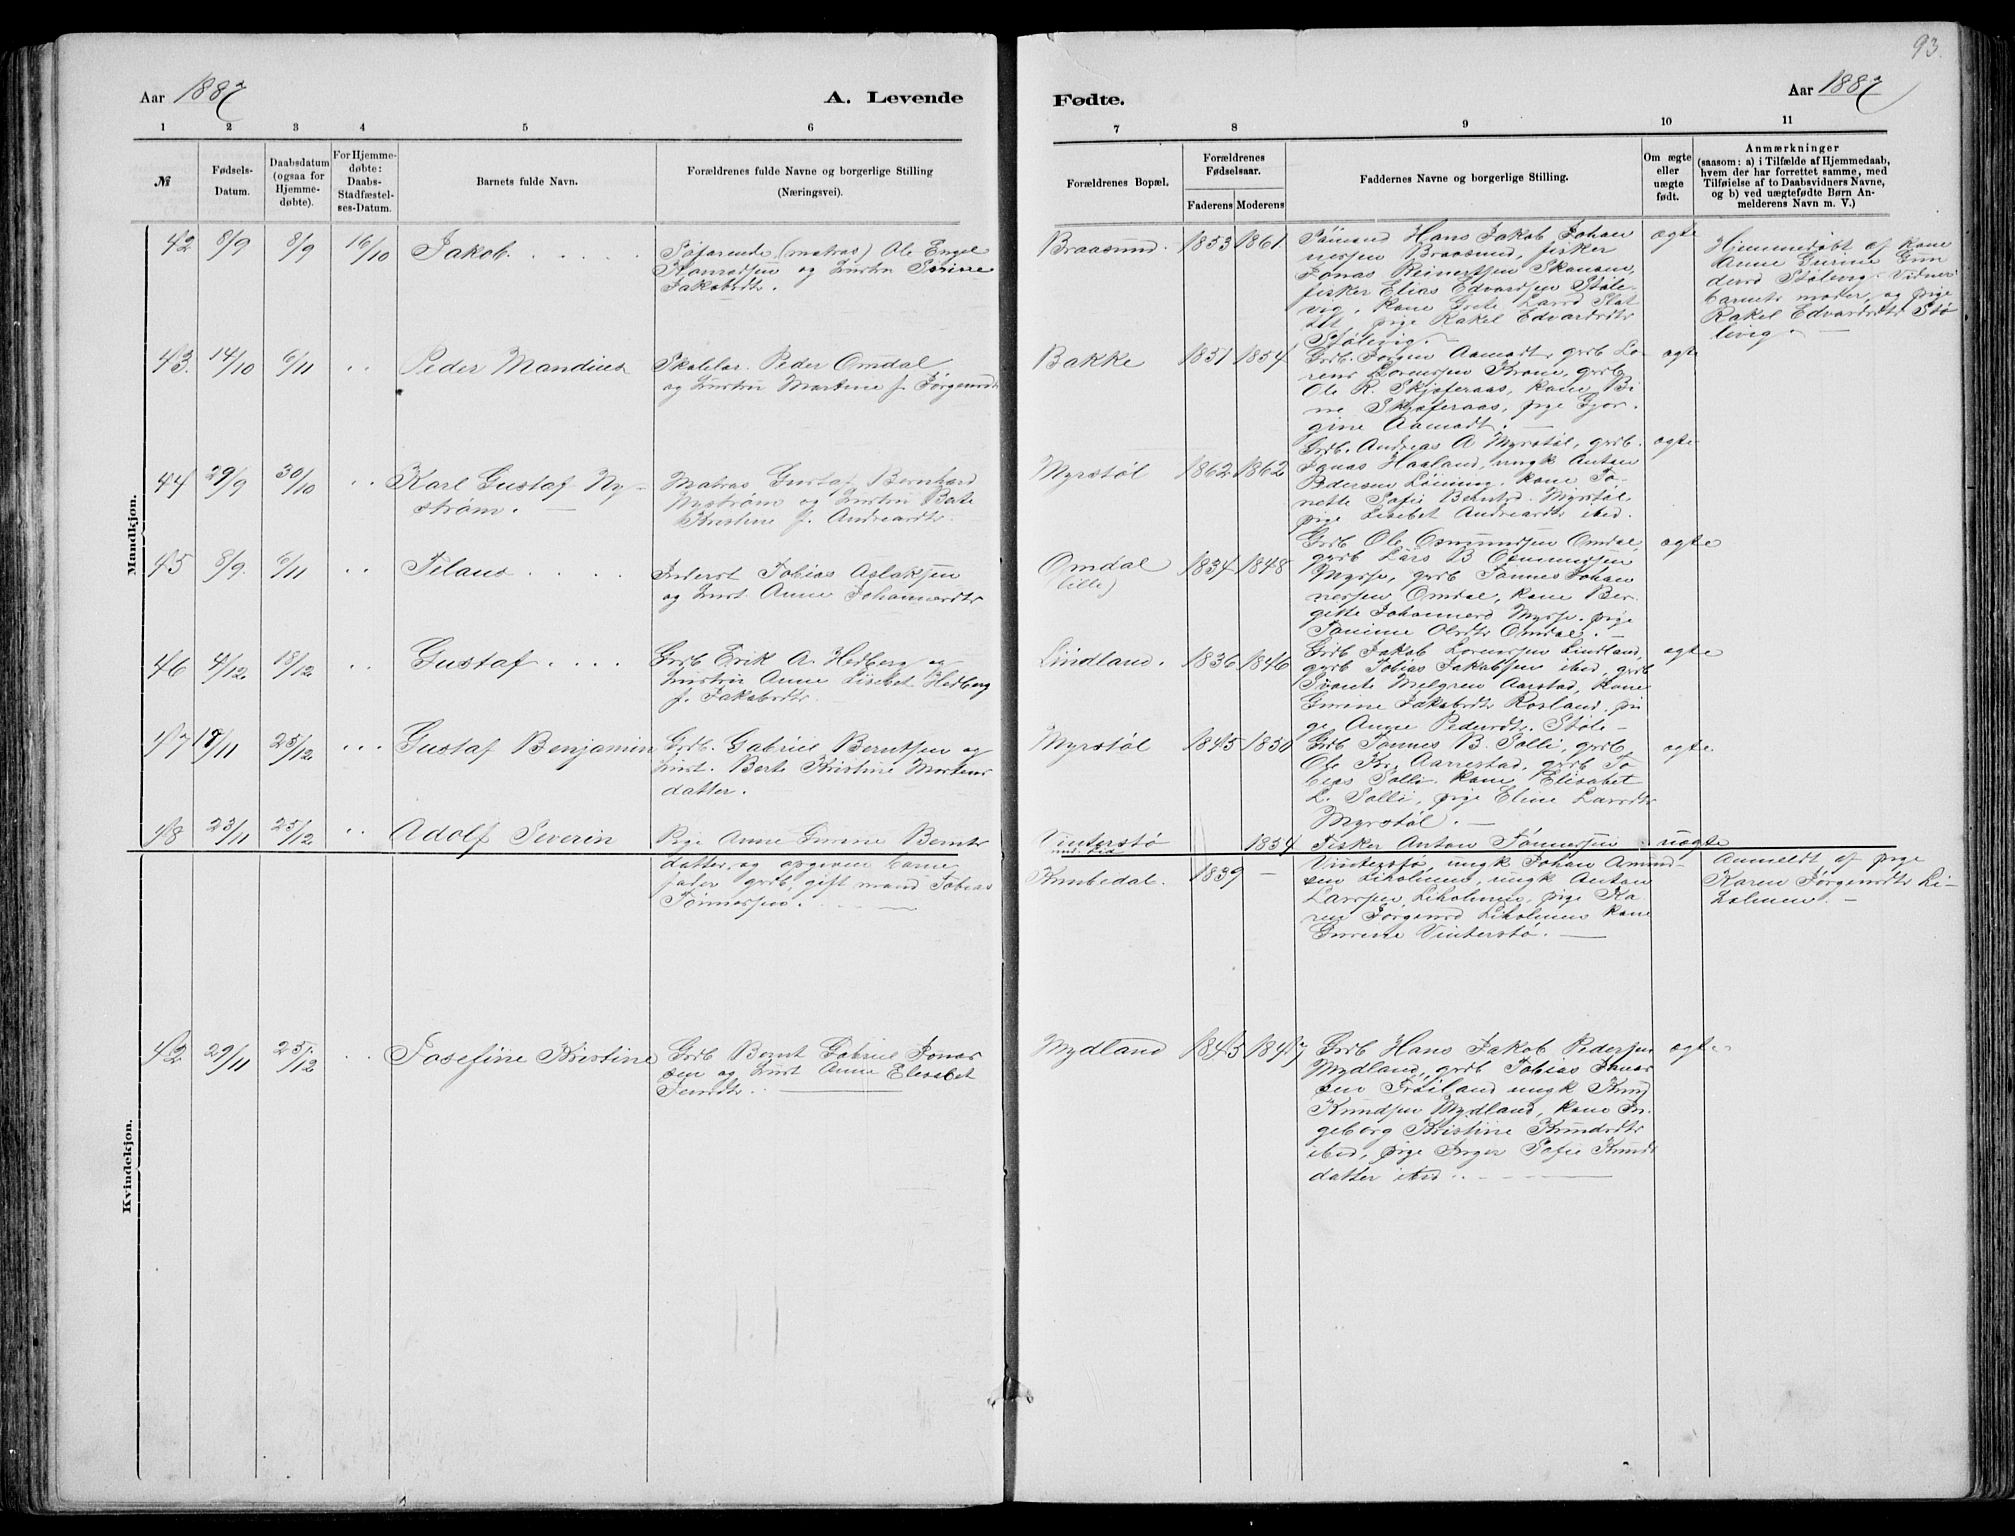 93.
Aar 1887
A. Levende
Fødte.
Aar 1887
1 2 3 4 5 6 7 8 9 10 11
№
Fødsels-
Datum.
Daabsdatum
(ogsaa for
Hjemme-
døbte).
For Hjemme-
døbte:
Daabs-
Stadfæstel-
ses-Datum.
Barnets fulde Navn.
Forældrenes fulde Navne og borgerlige Stilling
(Næringsvei).
Forældrenes Bopæl.
Forældrenes
Fødselsaar.
Faderens Moderens
Faddernes Navne og borgerlige Stilling.
Om ægte
eller
uægte
født.
Anmærkninger
(saasom: a) i Tilfælde af Hjemmedaab,
hvem der har forrettet samme, med
Tilføielse af to Daabsvidners Navne,
og b) ved uægtefødte Børn An-
melderens Navn m. V.)
Mandkjøn.
42 8/9 8/9 16/10 Jakob.
Søfarende (matros) Ole Engel
Konradsen og hustru Sørine
Jakobsdtr.
Braasund. 1853 1861
Sømand Hans Jakob Johan
nessen Braasund, fisker
Jonas Reinertsen Skansen,
fisker Elias Edvardsen Støle-
vig, kone Grete Larsd Slet
pige Rakel Edvardsdtr
Stølevig.
ægte
Hjemmedøbt af kone
Anne Gurine Gun
dersd Stølevig. Vidner
barnets moder, og pige
Rakel Edvardsdtr Stø
levig.
43 14/10 6/11 " Peder Mandius
Skolelær. Peder Omdal
og hustru Martine f. Jørgensdtr
Bakke 1851 1854
Grdb. Jørgen Aamodt, grdb Lo-
rens Lorensen Trone, grdb
Ole R. Skjøferaas, kone Bi
ne Skjøferaas, pige Gjor-
gine Aamodt.
ægte
44 29/9 30/10 " Karl Gustaf Ny-
strøm.
Matros Gustaf Bernhard
Nystrøm og hustru Berte
Kristine f. Andreasdtr.
Myrstøl 1862 1862
Grdb. Andreas A Myrstøl, grdb.
Jonas Haaland, ungk Anton
Pedersen Løining, kone To-
nette Sofie Berntsd. Myrstøl
pige Lisebet Andreasdtr ibid.
ægte
45 8/9. 6/11 " Tilaus
Inderst Tobias Aslaksen
og hust. Anne Johannesdtr
Omdal
(lille) 1834 1848
Grdb Ole Osmundsen Omdal,
grdb Lars B Osmundsen
Myrse, grdb Tønnes Johan
nessen Omdal, kone Ber-
gitte Johannesd Myrse. pige
Tomine Olsdtr Omdal.
ægte
46 4/12 18/12 " Gustaf
Grdb Erik A. Hedberg og
hustru Anne Lisebet Hedberg
f. Jakobsdtr
Lindland. 1836 1846
Grdb Jakob Lorensen Lindland,
grdb Tobias Jakobsen ibid, grdb
Svante Melgren Aarstad, kone
Gurine Jakobsdtr Rosland. pi
ge Anne Pedersdtr. Støle-
ægte
47 18/11 25/12 " Gustaf Benjamin
Grdb. Gabriel Berntsen og
hust. Berte Kristine Mortens
datter.
Myrstøl 1845 1850
Grdb Tønnes B. Solli, grdb
Ole Kr. Aarrestad, grdb To
bias Solli. kone Elisabet
L. Solli, pige Eline Larsdtr
Myrstøl.
ægte
48 23/11 25/12 " Adolf Severin
Pige Anne Gurine Bernts
datter og opgiven barne
fader grdb, gift mand Tobias
Tønnesen.
Vinterstø
Knubedal. 1854
1839
Fisker Anton Tønnesen
Vinterstø, ungk Johan Amund
sen Liholmen, ungk Anton
Larssen Liholmen, pige Ka
ren Jørgensd Liholmen kone
Gurine Vinterstø.
uægte
Anmeldt af pige
Karen Jørgensdtr Li-
holmen.
Kvindekjøn.
42 29/11 25/12 " Josefine Kristine
Grdb Bernt Gabriel Jonas
sen og hust Anne Elisabet
Jensdtr.
Mydland 1845 1847
Grdb Hans Jakob Pedersen
Mydland, grdb Tobias Jonas
sen Frøiland ungk Knud
Knudsen Mydland, kone In-
geborg Kristine Knudsdtr
ibid, pige Inger Sofie Knuds
datter ibid.
ægte